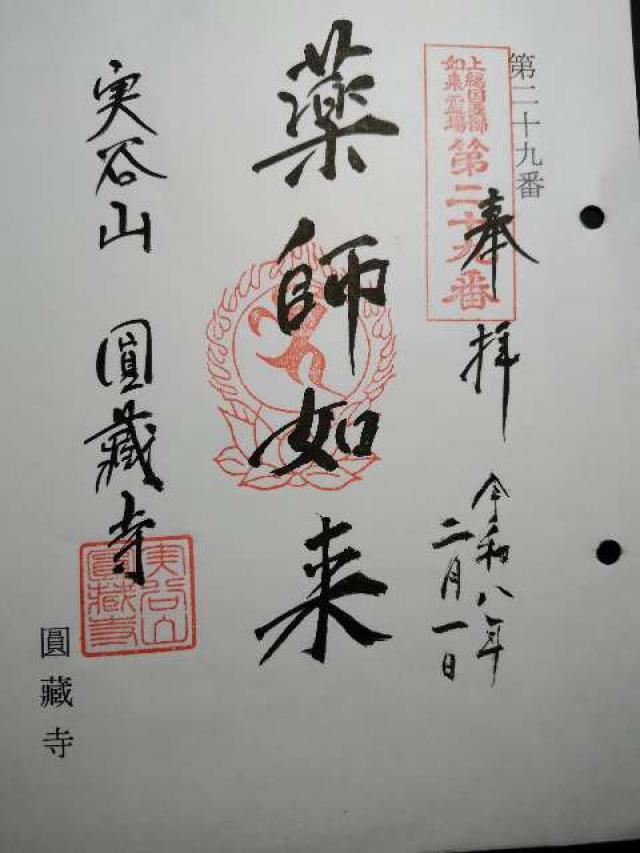 第二十九番
上総国薬師
如来霊場
第二十九番
奉拝
令和八年
二月一日
薬師如来
実谷山 圓蔵寺
実谷山
圓蔵寺
圓蔵寺